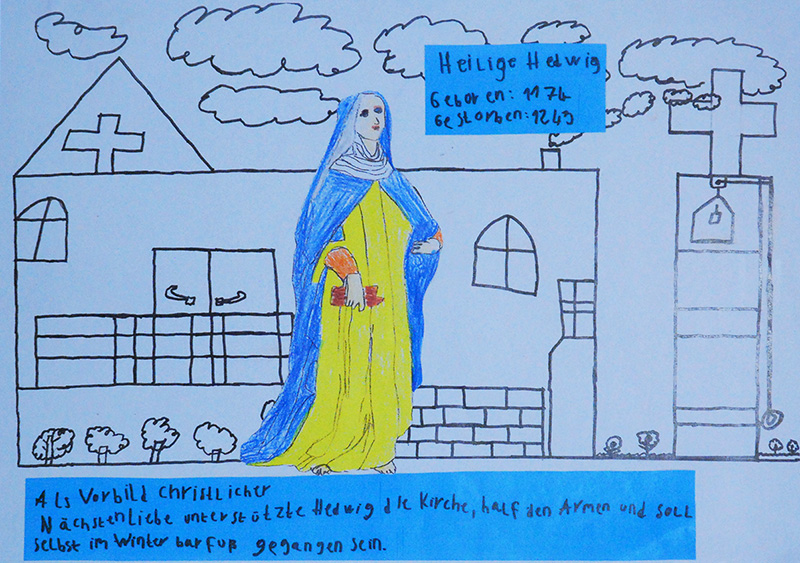 Heilige Hedwig
Geboren: 1174
Gestorben: 1243
Als Vorbild christlicher
Nächstenliebe unterstützte Hedwig die Kirche, half den Armen und soll
selbst im Winter barfuß gegangen sein.